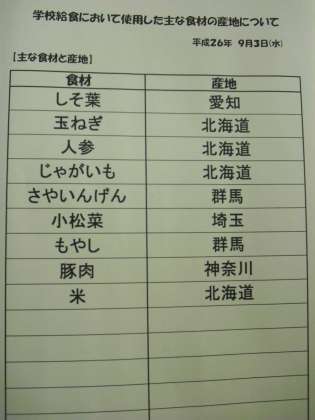 学校給食において使用した主な食材の産地について
平成26年 9月3日(水)
[主な食材と産地]
食材 産地
しそ葉 愛知
玉ねぎ 北海道
人参 北海道
じゃがいも 北海道
さやいんげん 群馬
小松菜 埼玉
もやし 群馬
豚肉 神奈川
米 北海道